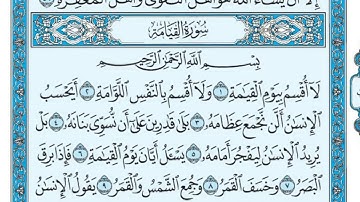 إلا أن يشاء الله هو أهل التقوى وأهل المغفرة
سورة القيامة
بسم الله الرحمن الرحيم
لا أقسم بيوم القيامة ١ ولا أقسم بالنفس اللوامة ٢ أيحسب
الإنسان ألن نجمع عظامه ٣ بلى قادرين على أن نسوي بنانه ٤ بل
يريد الإنسان ليفجر أمامه ٥ يسئل أيان يوم القيامة ٦ فإذا برق
البصر ٧ وخسف القمر ٨ وجمع الشمس والقمر ٩ يقول الإنسان